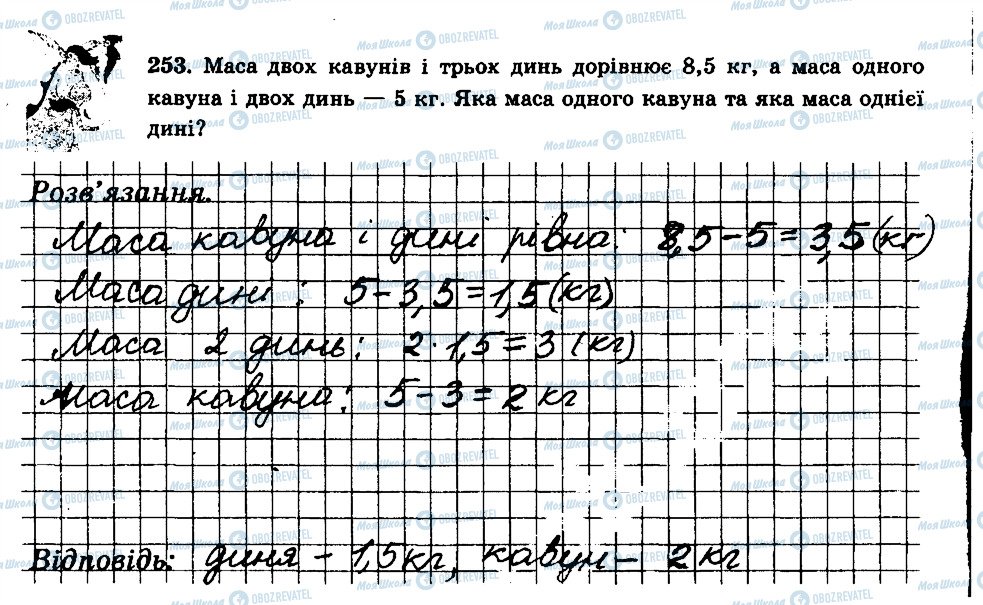 253. Маса двох кавунів і трьох динь дорівнює 8,5 кг, а маса одного
кавуна і двох динь — 5 кг. Яка маса одного кавуна та яка маса однієї
дині?
Розв'язання.
Маса кавуна і дині рівна: 8,5-5=3,5(кг)
Маса дині: 5-3,5=1,5(кг)
Маса 2 динь: 2·1,5=3 (кг)
Маса кавуна: 5-3=2 кг
Відповідь: диня - 1,5кг, кавун - 2 кг